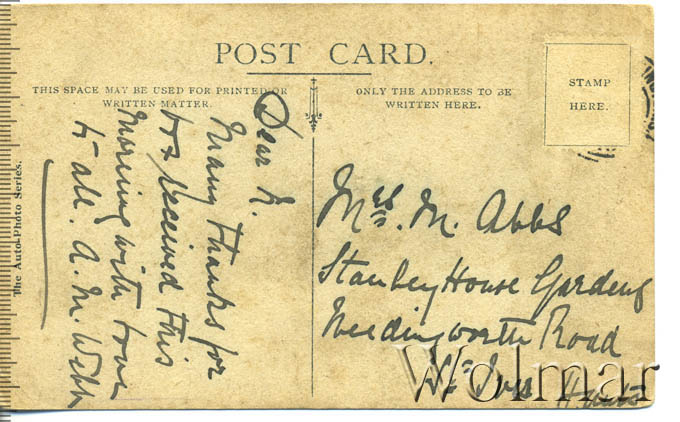 POST CARD.
THIS SPACE MAY BE USED FOR PRINTED OR
WRITTEN MATTER.
ONLY THE ADDRESS TO BE
WRITTEN HERE.
STAMP
HERE.
Dear N.
Many thanks for
box received this
morning with love
to all. A. M. Webb
Mrs. M. Abbs
Stanley House Gardens
Needingworth Road
St Ives Hunts
The Auto-Photo Series.
Wolmar